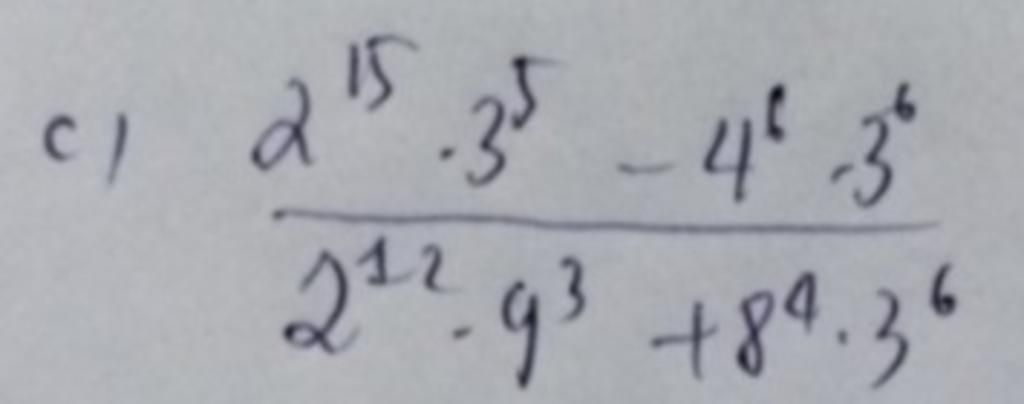 c) 2^15 . 3^5 - 4^6 . 3^6
2^12 . 9^3 + 8^4 . 3^6